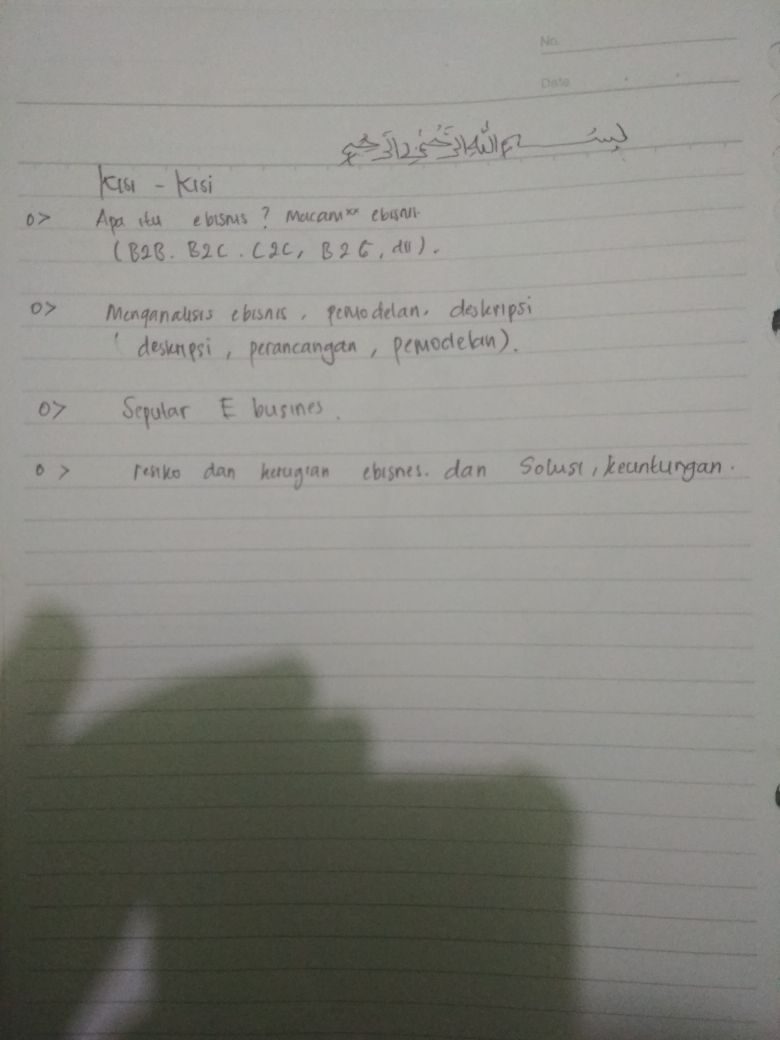 No.
Date
بِسْــــمِ اللَّهِ الرَّحْمَنِ الرَّحِيمِ
Kisi - Kisi
0> Apa itu ebisnis ? Macam" ebisnis
(B2B. B2C. C2C, B2G, dll).
0> Menganalisis ebisnis, pemodelan, deskripsi
( deskripsi, perancangan, pemodelan).
0> Seputar E busines.
0> resiko dan kerugian ebisnes. dan Solusi, keuntungan.